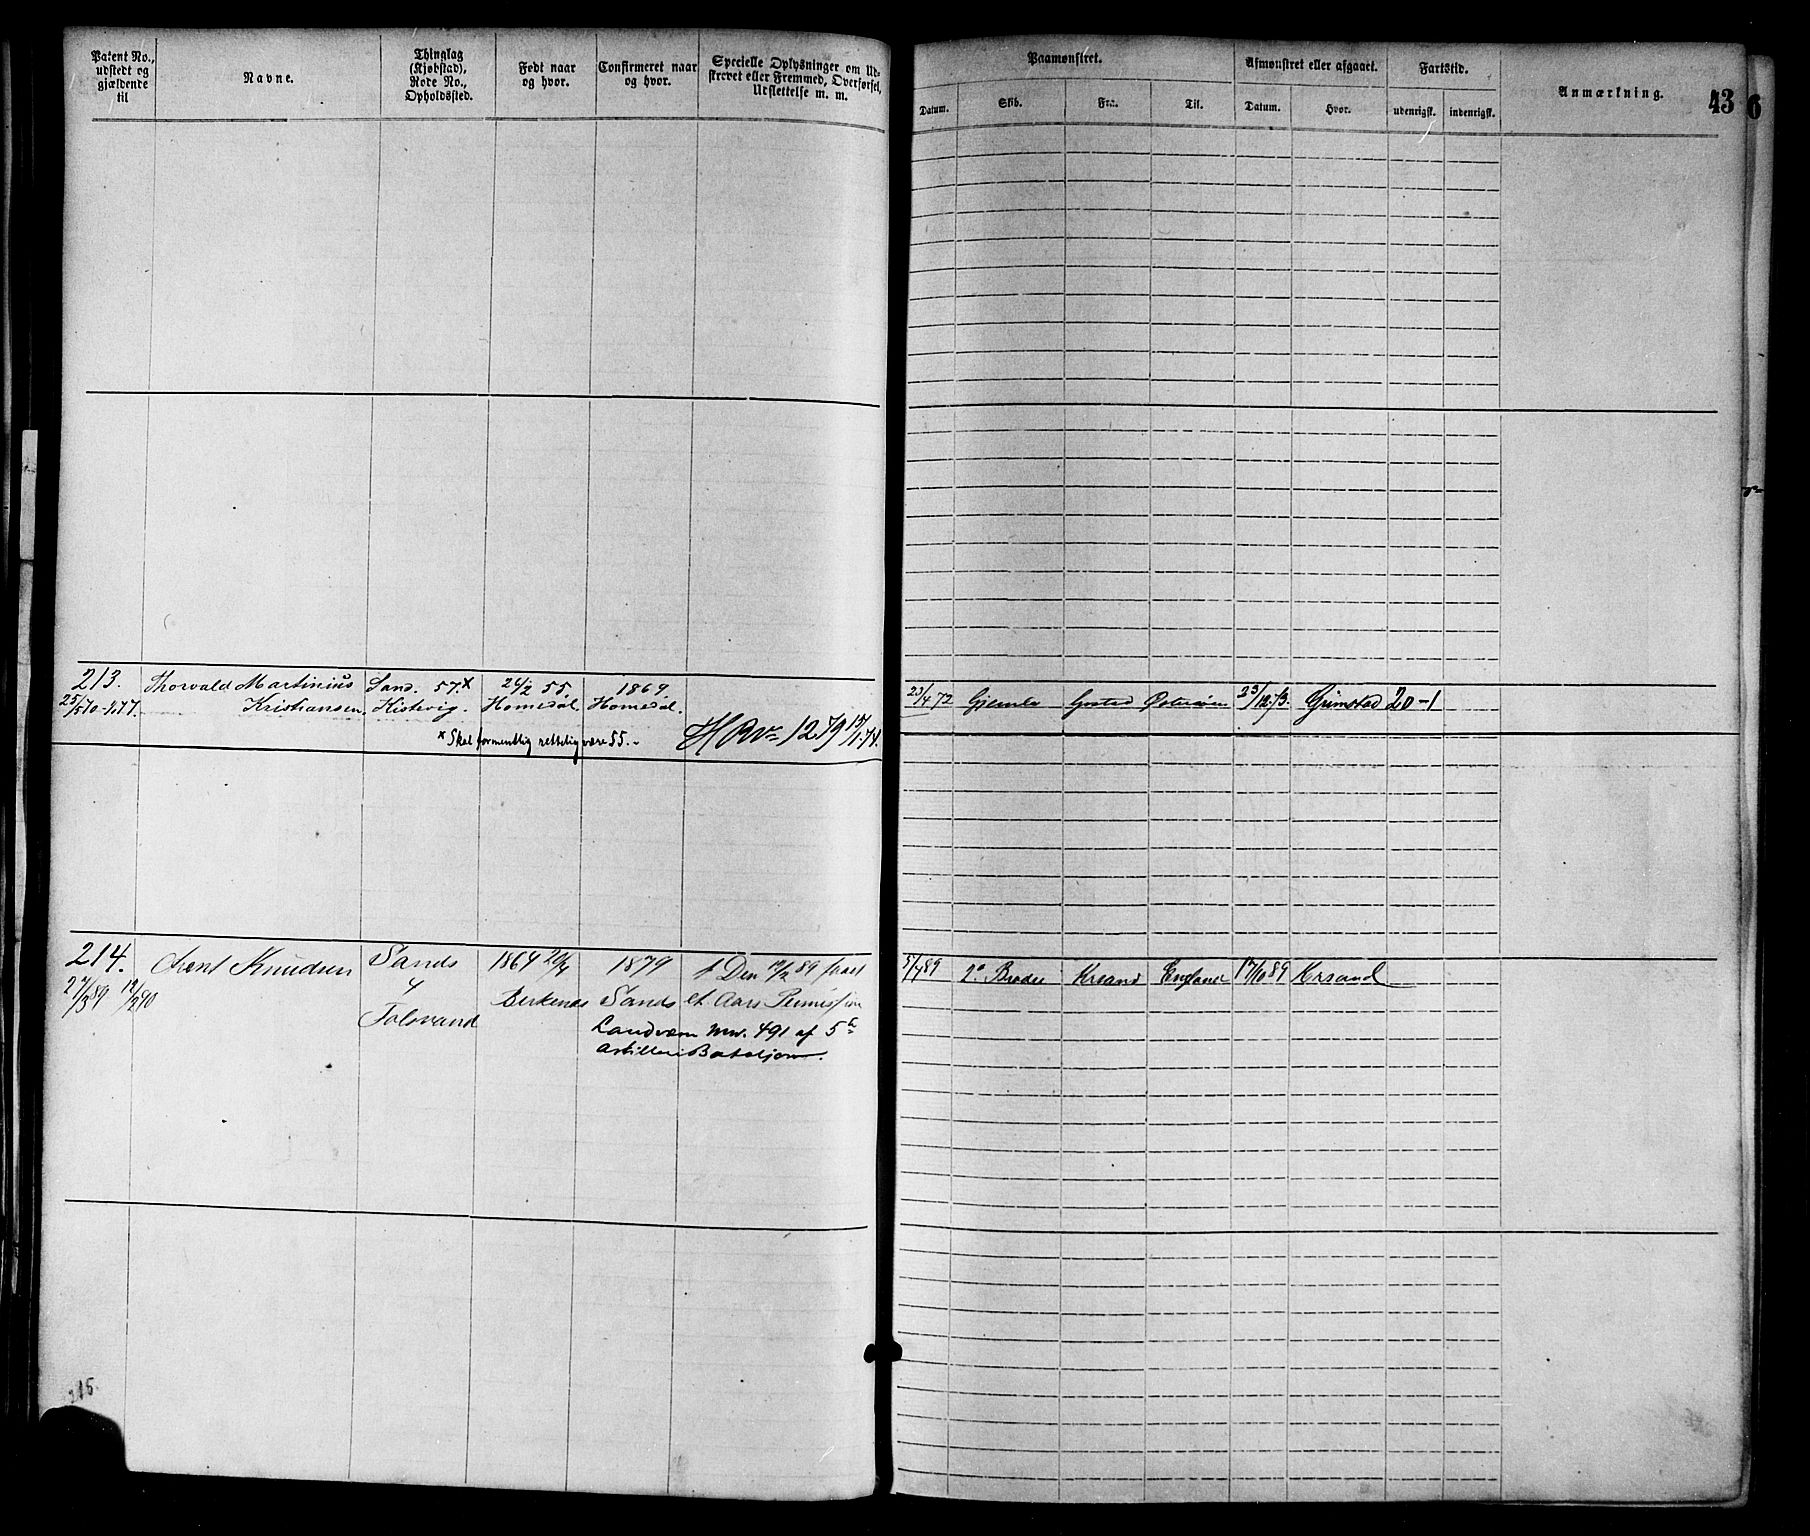 Patent No., udstedt og gjældende til
Navne.
Thinglag (Kjøbstad), Rode No., Opholdssted.
Født naar og hvor.
Confirmeret naar og hvor.
Specielle Oplysninger om Udskrevet eller Fremmed, Overførsel, Udslettelse m. m.
Paamønstret.
Afmønstret eller afgaaet.
Fartstid.
Anmærkning.
43
6
Datum.
Skib.
Fra.
Til.
Datum.
Hvor.
udenrigsk.
indenrigsk.
213. Thorvald Martinius Sand. 57.x 24/2 55. 1869.
Kristiansen. Kistevig. Homedal. Homedal.
x Skal formentlig rettelig være 55.
12.79
23/4 72 Gjemle Grstad 23/12.73. Grimstad 20-1
214. Arent Knudsen Sands 1864 20/4 1879 Den 19/2 89
27/3 89 19/2 90 4 Birkenes Sands et Aars Permission
Tolsvand Landværn 491 af 5te
Artilleri Bataljon.
5/4 89 2de Brødre Krsand England 17/10 89 Krsand
215.